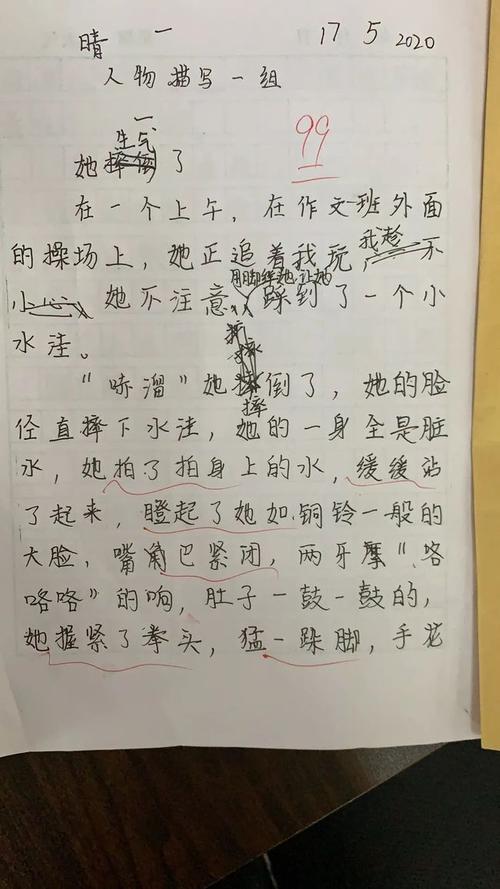 晴 一 17 5 2020
人物描写一组
一、
生气
她摔倒了
99
在一个上午，在作文班外面
的操场上，她正追着我玩，我趁
不小心，她不注意，用脚绊她，让她踩到了一个小
水洼。
"哧溜"她摔倒了，她的脸
摔
径直摔下水洼，她的一身全是脏
水，她拍了拍身上的水，缓缓站
了起来，瞪起了她如铜铃一般的
大脸，嘴角巴紧闭，两牙摩"咯
咯咯"的响，肚子一鼓一鼓的，
她握紧了拳头，猛一跺脚，手花